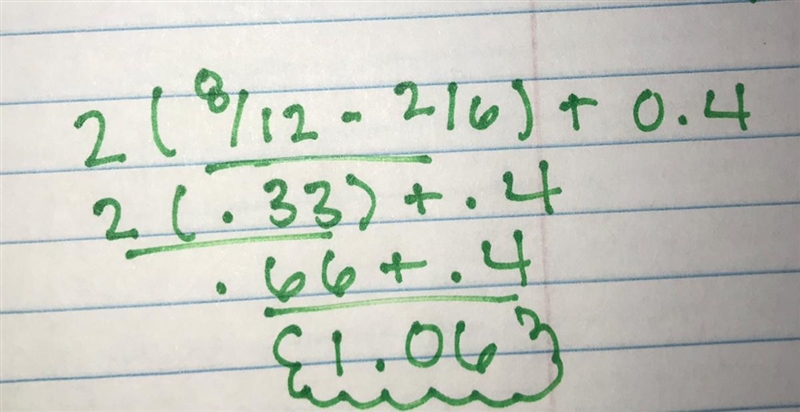 2(8/12 - 2/6) + 0.4
2(.33) + .4
.66 + .4
{1.06}